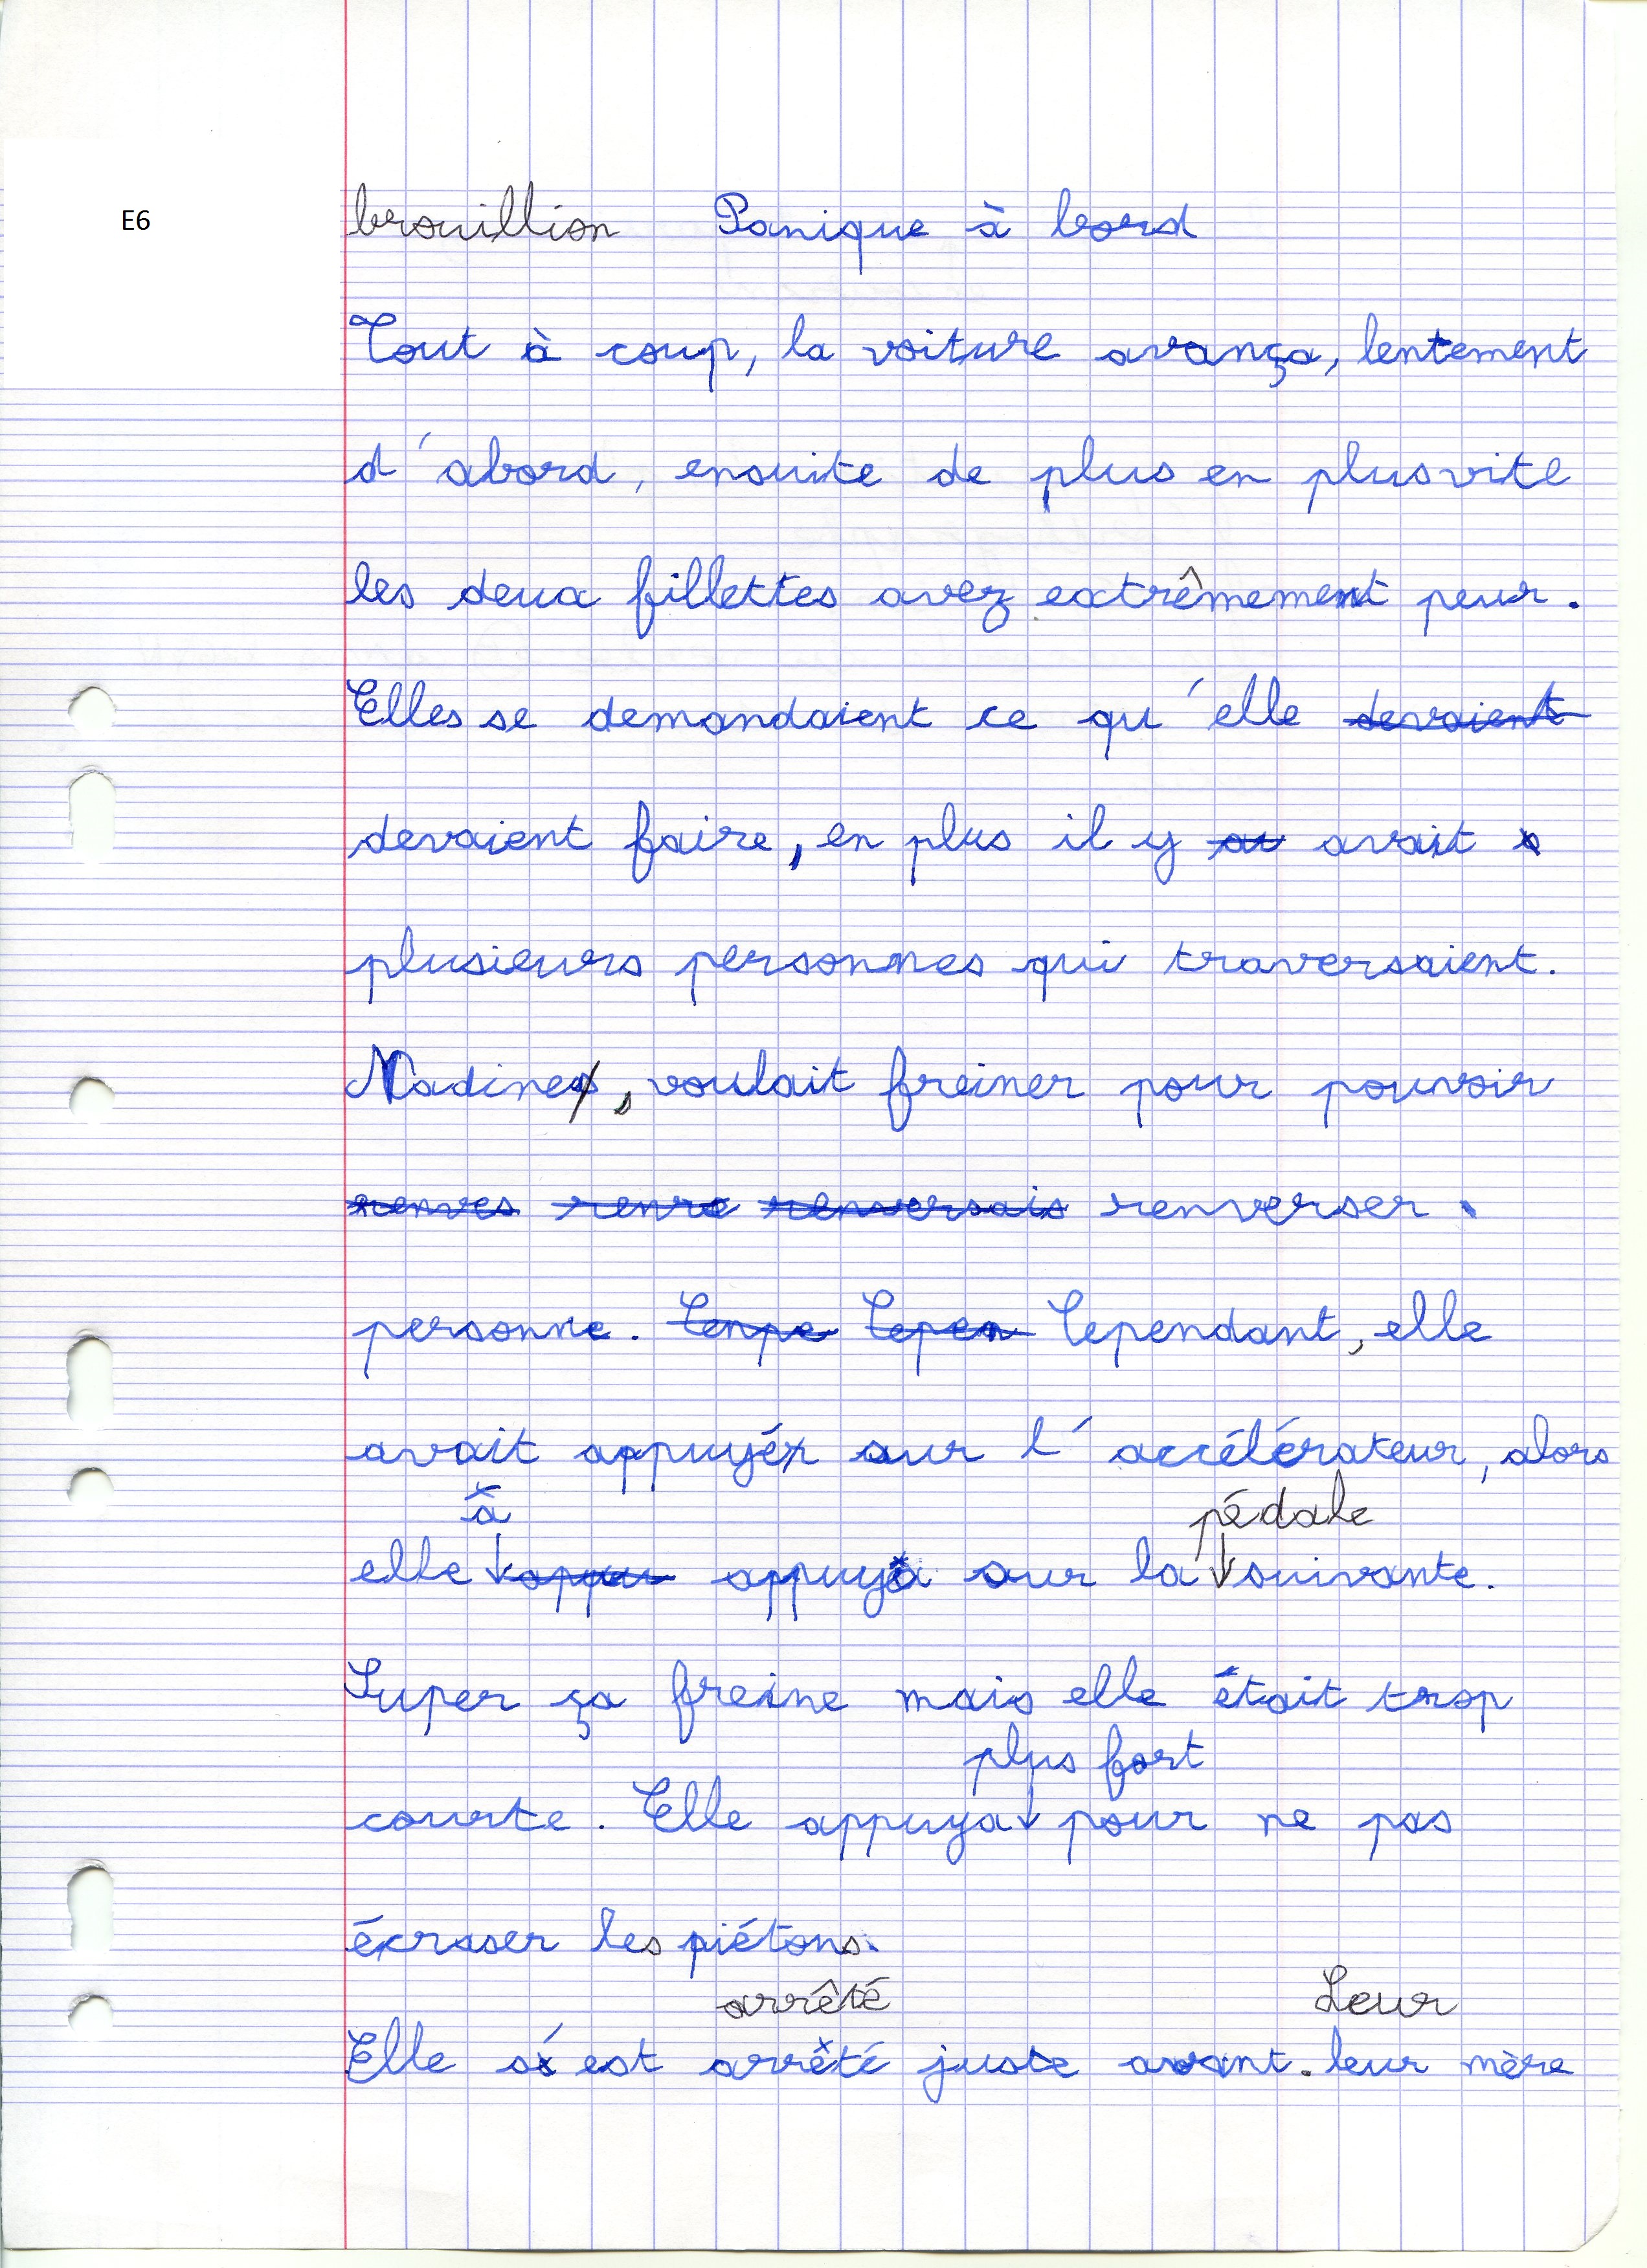 E6
brouillion Panique à bord
Tout à coup, la voiture avança, lentement
d'abord, ensuite de plus en plus vite
les deux fillettes avez extrêmement peur.
Elles se demandaient ce qu'elle devaient
devaient faire, en plus il y av avait
plusieurs personnes qui traversaient.
Nadine, voulait freiner pour pouvoir
renves renve renversais renverser
personne. Cenpe Cepen Cependant, elle
avait appuyé sur l'accélérateur, alors
à pédale
elle appu appuya sur la suivante.
Super ça freine mais elle était trop
plus fort
courte. Elle appuya pour ne pas
écraser les piétons.
arrêté Leur
Elle s'est arrêté juste avant. leur mère